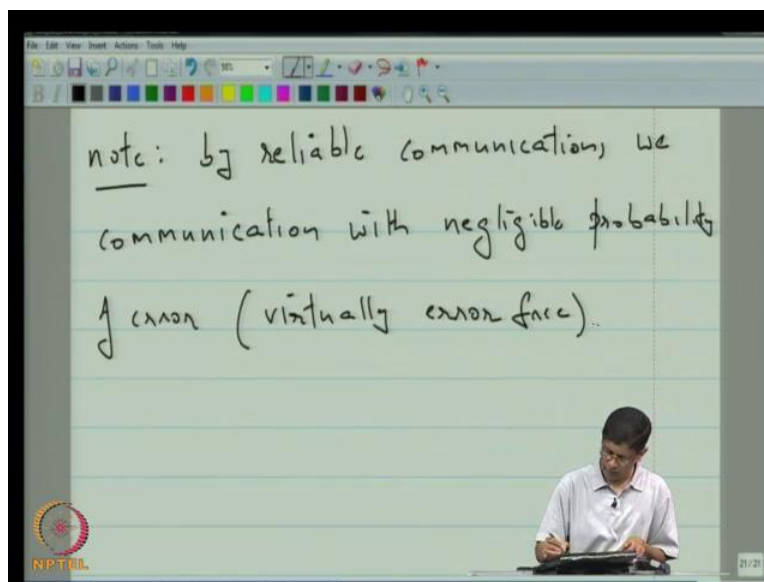 File Edit View Insert Actions Tools Help
50%
B I
note: by reliable communication, we
communication with negligible probability
of error (virtually error free).
NPTEL
21/21